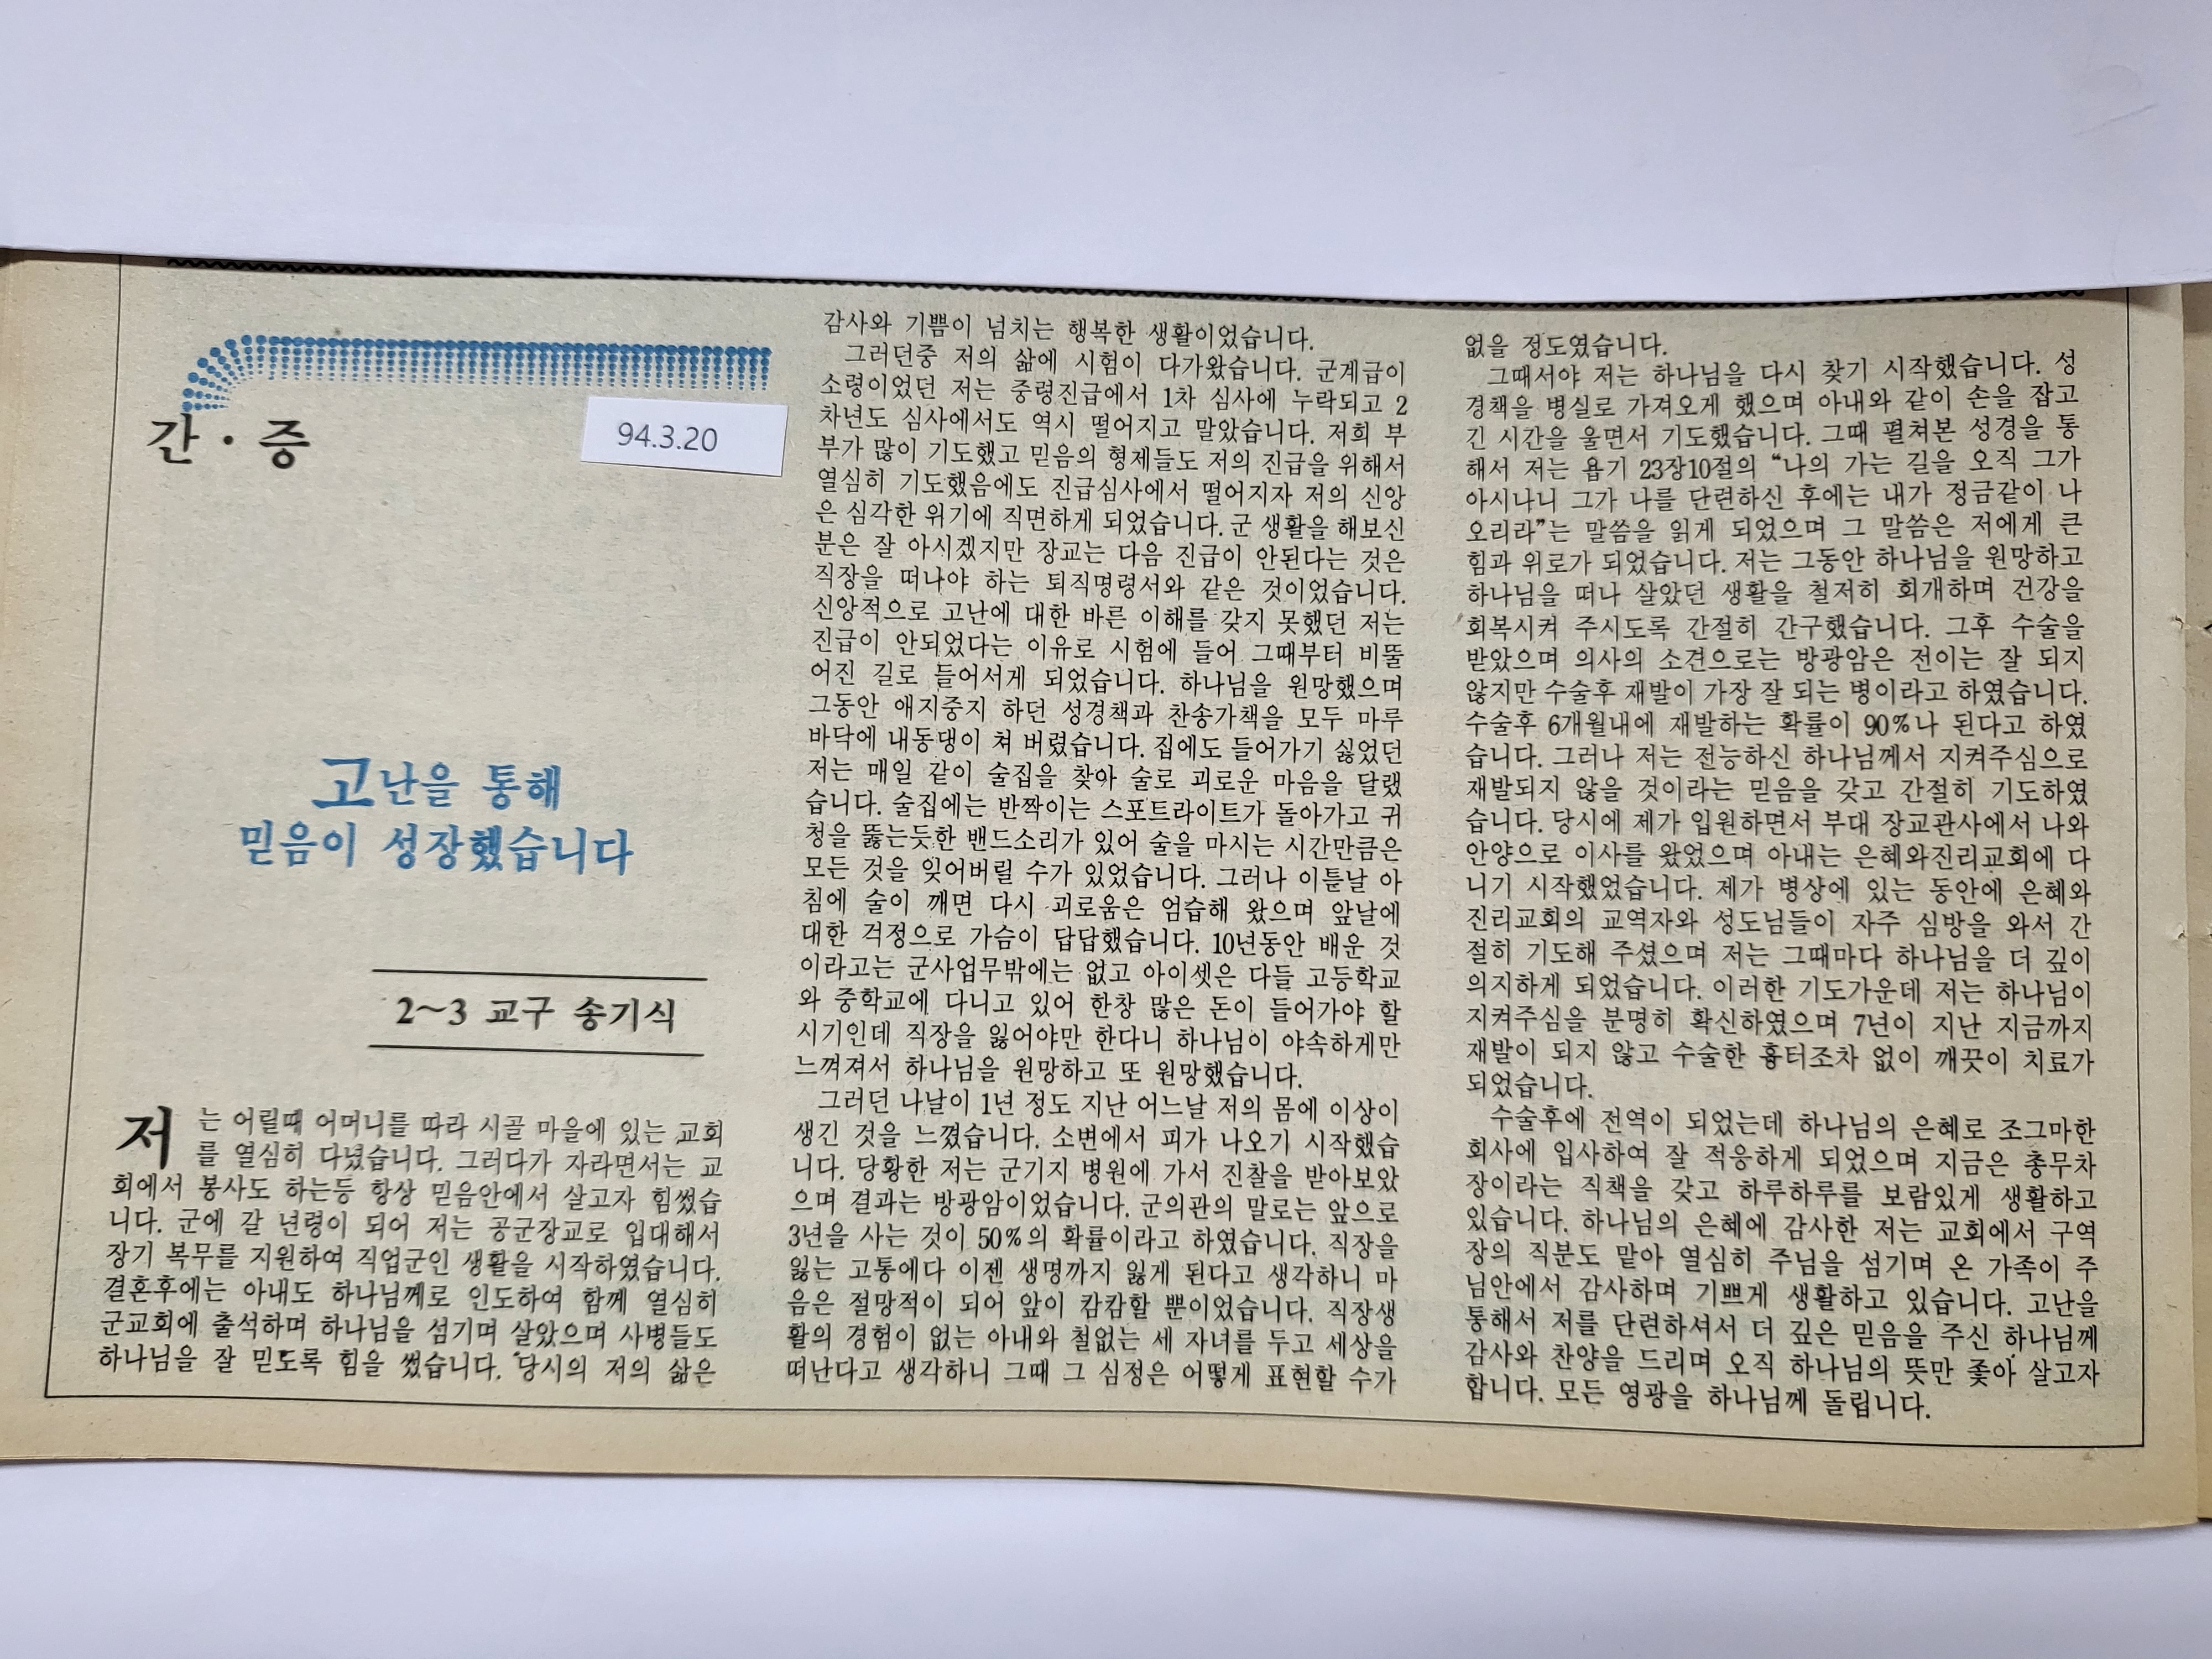 간·증
94.3.20
고난을 통해
믿음이 성장했습니다
2~3 교구 송기식
저는 어릴때 어머니를 따라 시골 마을에 있는 교회
를 열심히 다녔습니다. 그러다가 자라면서는 교
회에서 봉사도 하는등 항상 믿음안에서 살고자 힘썼습
니다. 군에 갈 년령이 되어 저는 공군장교로 입대해서
장기 복무를 지원하여 직업군인 생활을 시작하였습니다.
결혼후에는 아내도 하나님께로 인도하여 함께 열심히
군교회에 출석하며 하나님을 섬기며 살았으며 사병들도
하나님을 잘 믿도록 힘을 썼습니다. 당시의 저의 삶은
감사와 기쁨이 넘치는 행복한 생활이었습니다.
그러던중 저의 삶에 시험이 다가왔습니다. 군계급이
소령이었던 저는 중령진급에서 1차 심사에 누락되고 2
차년도 심사에서도 역시 떨어지고 말았습니다. 저희 부
부가 많이 기도했고 믿음의 형제들도 저의 진급을 위해서
열심히 기도했음에도 진급심사에서 떨어지자 저의 신앙
은 심각한 위기에 직면하게 되었습니다. 군 생활을 해보신
분은 잘 아시겠지만 장교는 다음 진급이 안된다는 것은
직장을 떠나야 하는 퇴직명령서와 같은 것이었습니다.
신앙적으로 고난에 대한 바른 이해를 갖지 못했던 저는
진급이 안되었다는 이유로 시험에 들어 그때부터 비뚤
어진 길로 들어서게 되었습니다. 하나님을 원망했으며
그동안 애지중지 하던 성경책과 찬송가책을 모두 마루
바닥에 내동댕이 쳐 버렸습니다. 집에도 들어가기 싫었던
저는 매일 같이 술집을 찾아 술로 괴로운 마음을 달랬
습니다. 술집에는 반짝이는 스포트라이트가 돌아가고 귀
청을 뚫는듯한 밴드소리가 있어 술을 마시는 시간만큼은
모든 것을 잊어버릴 수가 있었습니다. 그러나 이튿날 아
침에 술이 깨면 다시 괴로움은 엄습해 왔으며 앞날에
대한 걱정으로 가슴이 답답했습니다. 10년동안 배운 것
이라고는 군사업무밖에는 없고 아이셋은 다들 고등학교
와 중학교에 다니고 있어 한창 많은 돈이 들어가야 할
시기인데 직장을 잃어야만 한다니 하나님이 야속하게만
느껴져서 하나님을 원망하고 또 원망했습니다.
그러던 나날이 1년 정도 지난 어느날 저의 몸에 이상이
생긴 것을 느꼈습니다. 소변에서 피가 나오기 시작했습
니다. 당황한 저는 군기지 병원에 가서 진찰을 받아보았
으며 결과는 방광암이었습니다. 군의관의 말로는 앞으로
3년을 사는 것이 50%의 확률이라고 하였습니다. 직장을
잃는 고통에다 이젠 생명까지 잃게 된다고 생각하니 마
음은 절망적이 되어 앞이 캄캄할 뿐이었습니다. 직장생
활의 경험이 없는 아내와 철없는 세 자녀를 두고 세상을
떠난다고 생각하니 그때 그 심정은 어떻게 표현할 수가
없을 정도였습니다.
그때서야 저는 하나님을 다시 찾기 시작했습니다. 성
경책을 병실로 가져오게 했으며 아내와 같이 손을 잡고
긴 시간을 울면서 기도했습니다. 그때 펼쳐본 성경을 통
해서 저는 욥기 23장10절의 “나의 가는 길을 오직 그가
아시나니 그가 나를 단련하신 후에는 내가 정금같이 나
오리라”는 말씀을 읽게 되었으며 그 말씀은 저에게 큰
힘과 위로가 되었습니다. 저는 그동안 하나님을 원망하고
하나님을 떠나 살았던 생활을 철저히 회개하며 건강을
회복시켜 주시도록 간절히 간구했습니다. 그후 수술을
받았으며 의사의 소견으로는 방광암은 전이는 잘 되지
않지만 수술후 재발이 가장 잘 되는 병이라고 하였습니다.
수술후 6개월내에 재발하는 확률이 90%나 된다고 하였
습니다. 그러나 저는 전능하신 하나님께서 지켜주심으로
재발되지 않을 것이라는 믿음을 갖고 간절히 기도하였
습니다. 당시에 제가 입원하면서 부대 장교관사에서 나와
안양으로 이사를 왔었으며 아내는 은혜와진리교회에 다
니기 시작했었습니다. 제가 병상에 있는 동안에 은혜와
진리교회의 교역자와 성도님들이 자주 심방을 와서 간
절히 기도해 주셨으며 저는 그때마다 하나님을 더 깊이
의지하게 되었습니다. 이러한 기도가운데 저는 하나님이
지켜주심을 분명히 확신하였으며 7년이 지난 지금까지
재발이 되지 않고 수술한 흉터조차 없이 깨끗이 치료가
되었습니다.
수술후에 전역이 되었는데 하나님의 은혜로 조그마한
회사에 입사하여 잘 적응하게 되었으며 지금은 총무차
장이라는 직책을 갖고 하루하루를 보람있게 생활하고
있습니다. 하나님의 은혜에 감사한 저는 교회에서 구역
장의 직분도 맡아 열심히 주님을 섬기며 온 가족이 주
님안에서 감사하며 기쁘게 생활하고 있습니다. 고난을
통해서 저를 단련하셔서 더 깊은 믿음을 주신 하나님께
감사와 찬양을 드리며 오직 하나님의 뜻만 좇아 살고자
합니다. 모든 영광을 하나님께 돌립니다.